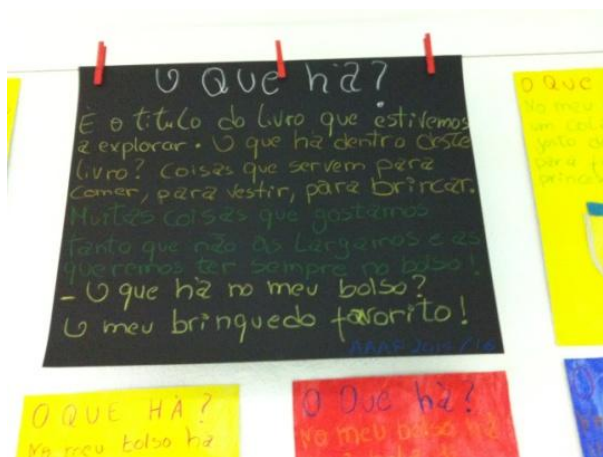 O Que há?
É o título do livro que estivemos
a explorar. O que há dentro deste
livro? Coisas que servem para
comer, para vestir, para brincar.
Muitas coisas que gostamos
tanto que não as largamos e as
queremos ter sempre no bolso!
- O que há no meu bolso?
O meu brinquedo favorito!
2015/16
O QUE
No meu
um col
para
princes
O QUE HÁ?
No meu bolso há
O Que há?
No meu bolso há